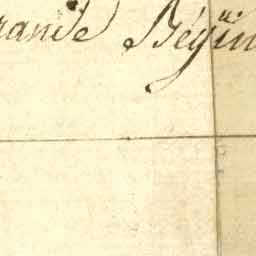 rande Bégin